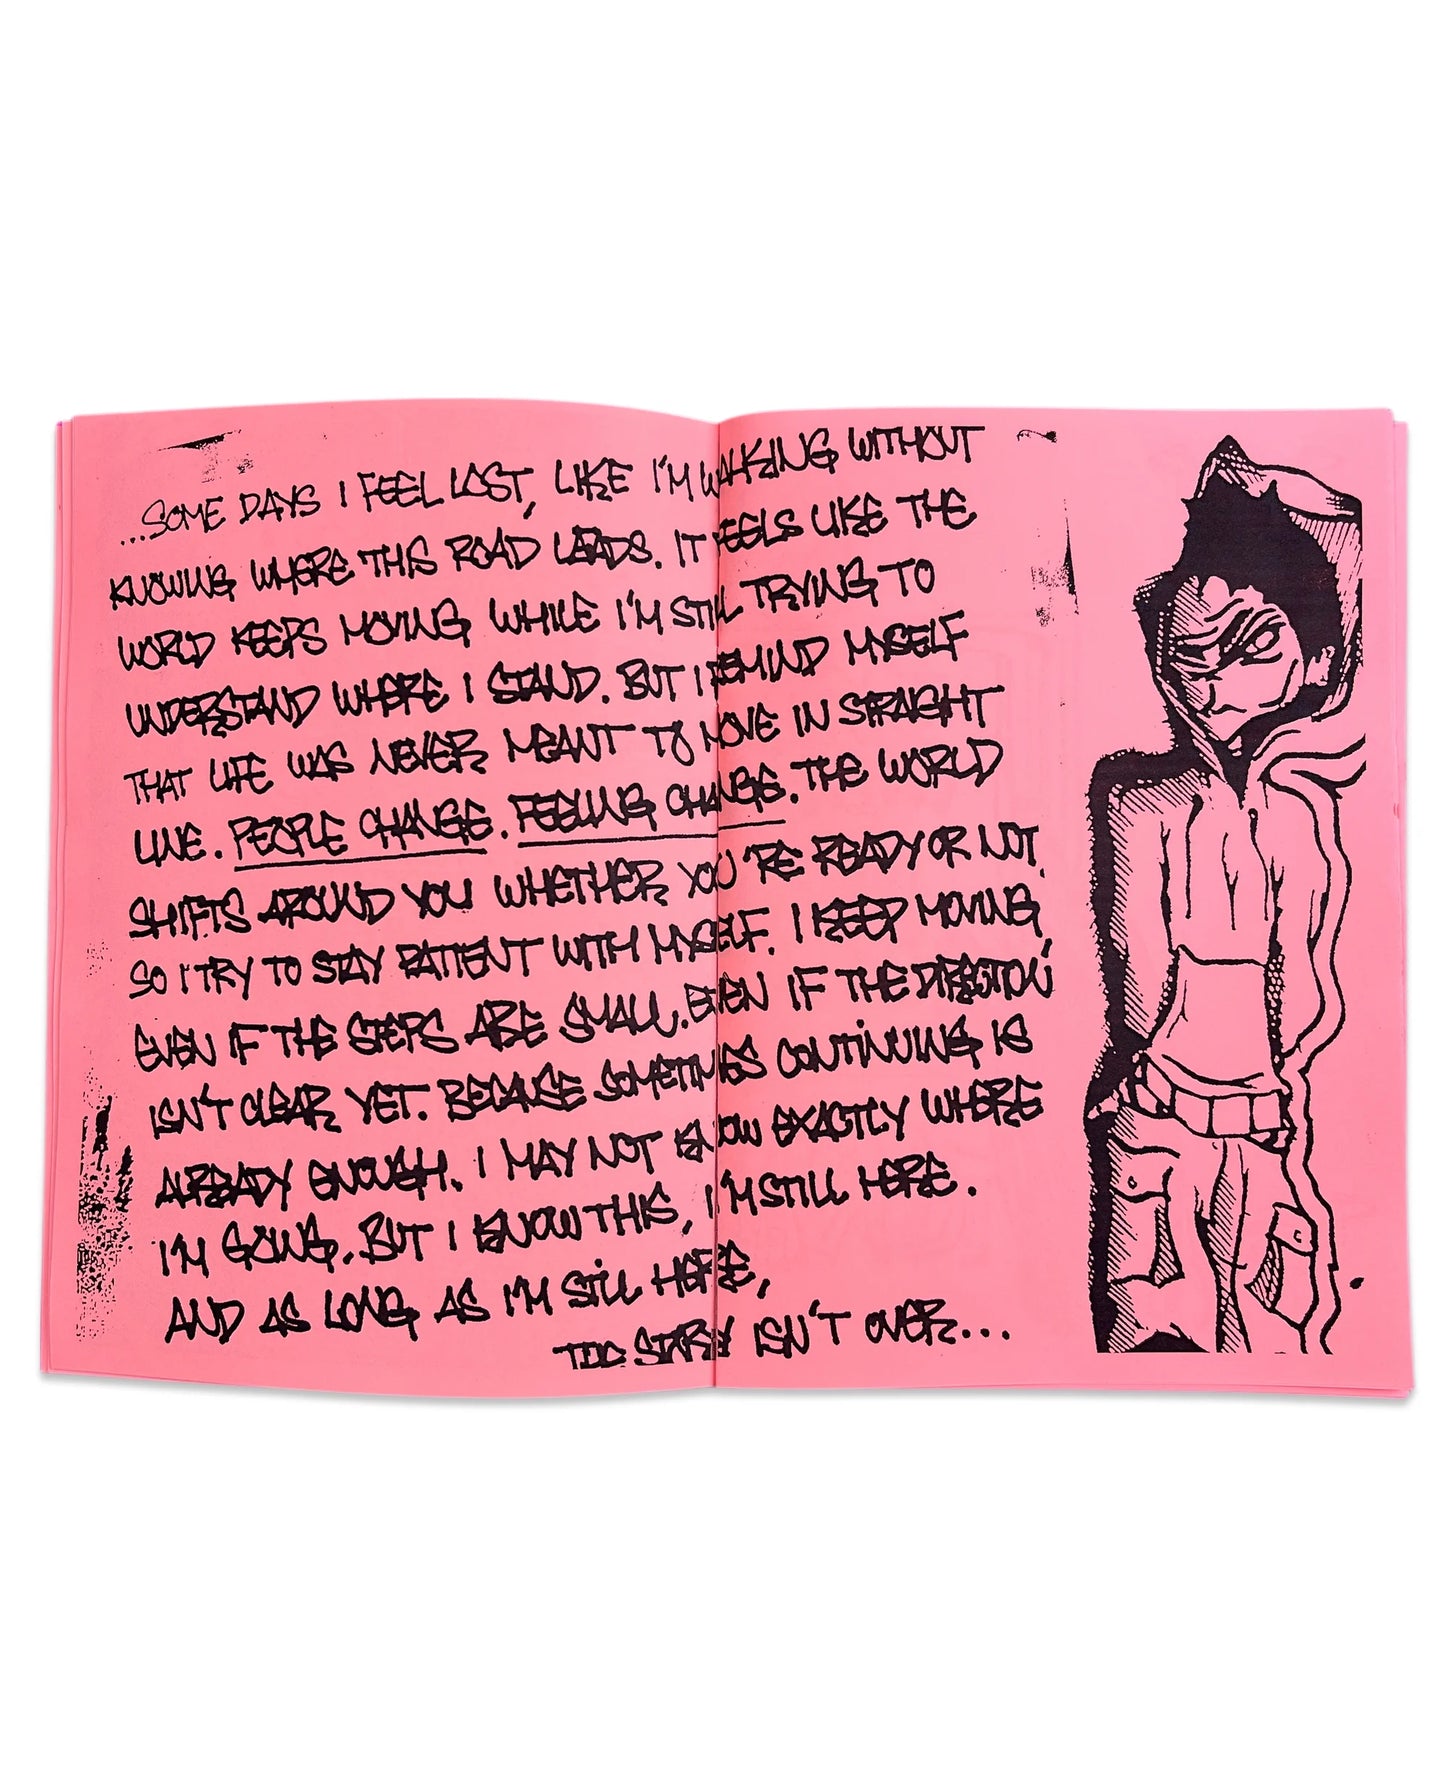 ...SOME DAYS I FEEL LOST, LIKE I'M WALKING WITHOUT
KNOWING WHERE THIS ROAD LEADS. IT FEELS LIKE THE
WORLD KEEPS MOVING WHILE I'M STILL TRYING TO
UNDERSTAND WHERE I STAND. BUT I REMIND MYSELF
THAT LIFE WAS NEVER MEANT TO MOVE IN STRAIGHT
LINE. PEOPLE CHANGE. FEELING CHANGE. THE WORLD
SHIFTS AROUND YOU WHETHER YOU'RE READY OR NOT.
SO I TRY TO STAY PATIENT WITH MYSELF. I KEEP MOVING,
EVEN IF THE STEPS ARE SMALL. EVEN IF THE DIRECTION
ISN'T CLEAR YET. BECAUSE SOMETIMES CONTINUING IS
ALREADY ENOUGH. I MAY NOT KNOW EXACTLY WHERE
I'M GOING. BUT I KNOW THIS, I'M STILL HERE.
AND AS LONG AS I'M STILL HERE,
THE STORY ISN'T OVER...